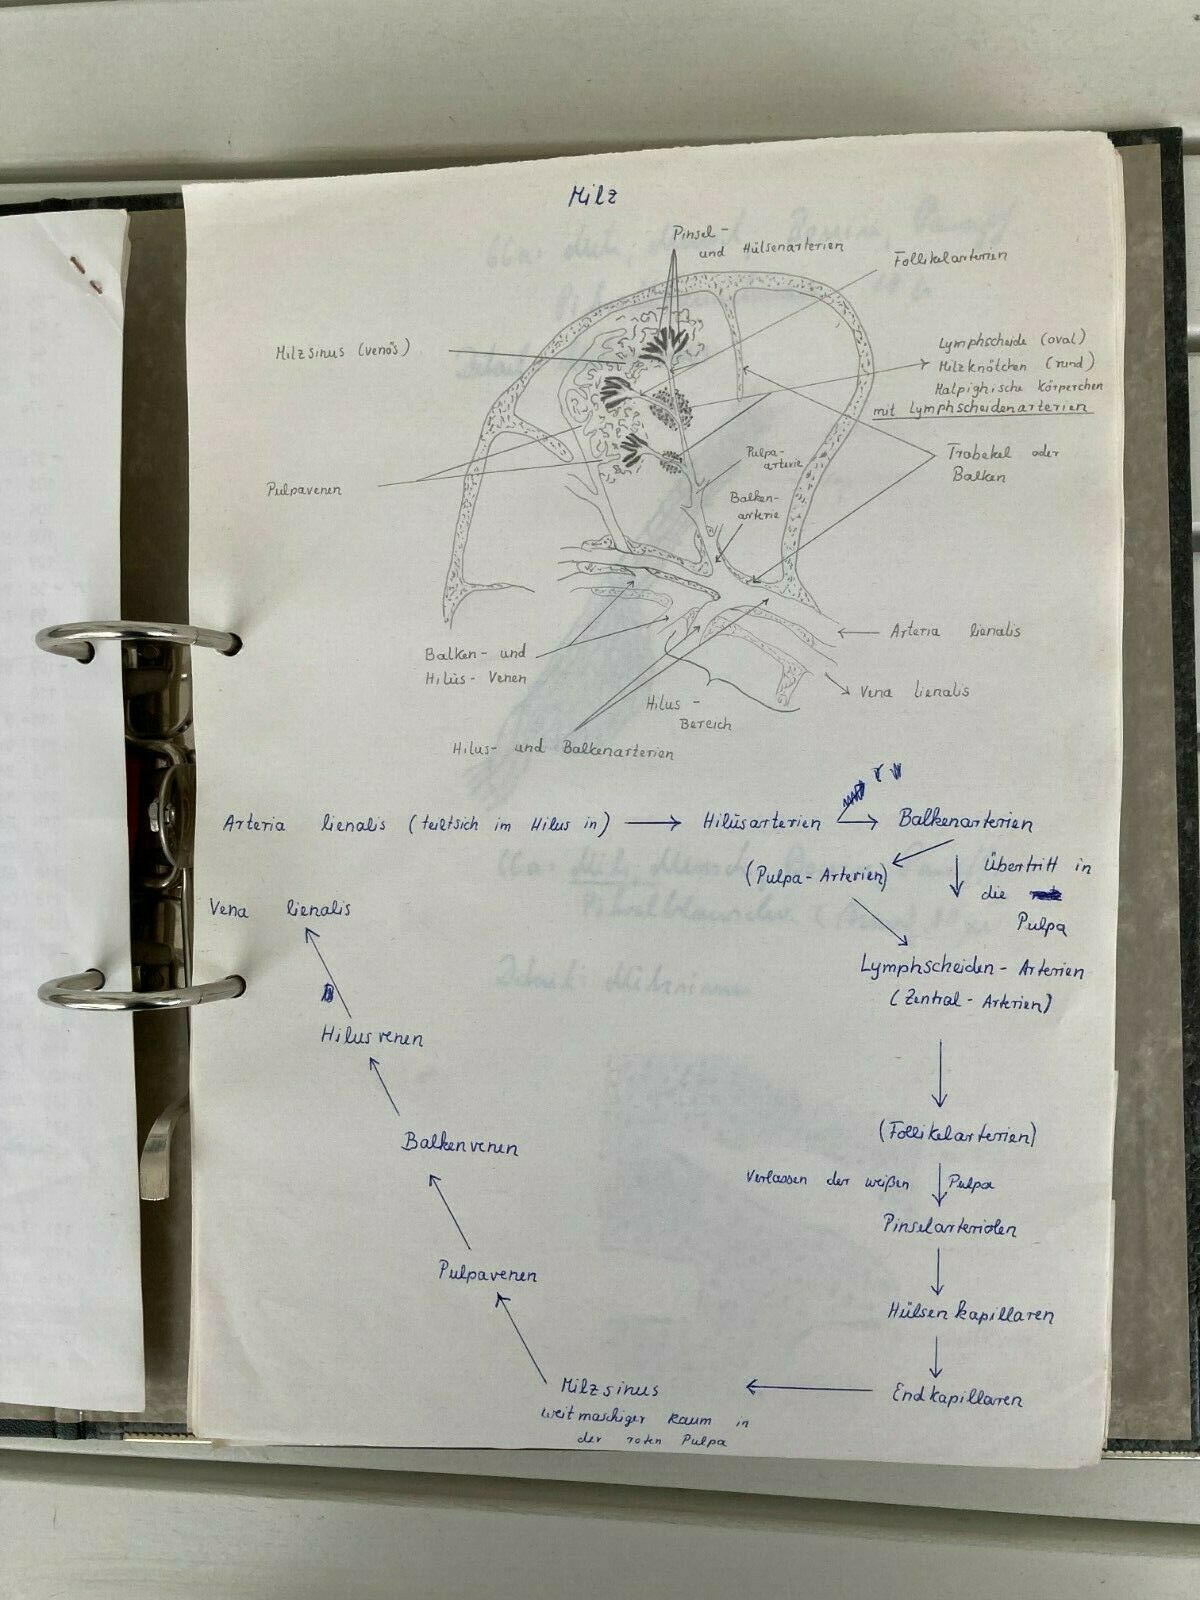 Milz
Pinsel-
und Hülsenarterien
Follikelarterien
Milzsinus (venös)
Lymphscheide (oval)
Milzknötchen (rund)
Malpighische Körperchen
mit Lymphscheidenarterien
Pulpa-
arterie
Trabekel oder
Balken
Pulpavenen
Balken-
arterie
Arteria lienalis
Balken- und
Hilus-Venen
Vena lienalis
Hilus-
Bereich
Hilus- und Balkenarterien
Arteria lienalis (teiltsich im Hilus in) → Hilusarterien → Balkenarterien
(Pulpa-Arterien)
Übertritt in
die
Pulpa
Vena lienalis
Lymphscheiden-Arterien
(Zentral-Arterien)
Hilusvenen
(Follikelarterien)
Balkenvenen
Verlassen der weißen Pulpa
Pinselarteriolen
Pulpavenen
Hülsenkapillaren
Milzsinus ← Endkapillaren
weitmaschiger Raum in
der roten Pulpa